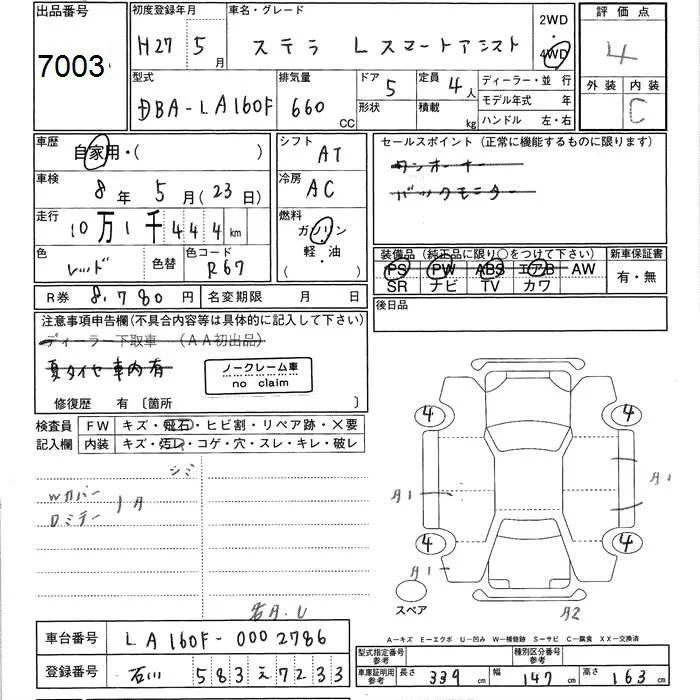 出品番号
7003
初度登録年月
H27 5月
車名・グレード
ステラ Lスマートアシスト
2WD
4WD
評価点
4
外装 内装
C
型式
DBA-LA160F
排気量
660 CC
ドア 5
形状
定員 4人
積載 kg
ディーラー・並行
モデル年式 年
ハンドル 左・右
車歴
自家用・( )
シフト
AT
セールスポイント (正常に機能するものに限ります)
ワンオーナー
バックモニター
車検
8年 5月(23日)
冷房
AC
走行
10万1千444km
燃料
ガソリン
軽・油
( )
色
レッド
色替
色コード
R67
装備品 (純正品に限り○をつけて下さい)
PS PW ABS エアB AW
SR ナビ TV カワ
新車保証書
有・無
R券 8,780円
名変期限 月 日
後日品
注意事項申告欄(不具合内容等は具体的に記入して下さい)
ディーラー下取車 (AA初出品)
夏タイヤ車内有
ノークレーム車
no claim
修復歴 有〔箇所 〕
検査員
記入欄
FW キズ・飛石・ヒビ割・リペア跡・×要
内装 キズ・汚レ・コゲ・穴・スレ・キレ・破レ
シミ
Wカバー
Dミラー
4 4
4 4
スペア
A2
A-キズ E-エクボ U-凹み W-補修跡 S-サビ C-腐食 XX-交換済
車台番号 LA160F-0002786
登録番号 石川 583え7233
型式指定番号
参考
種別区分番号
参考
車庫証明用
参考
長さ 339cm
幅 147cm
高さ 163cm